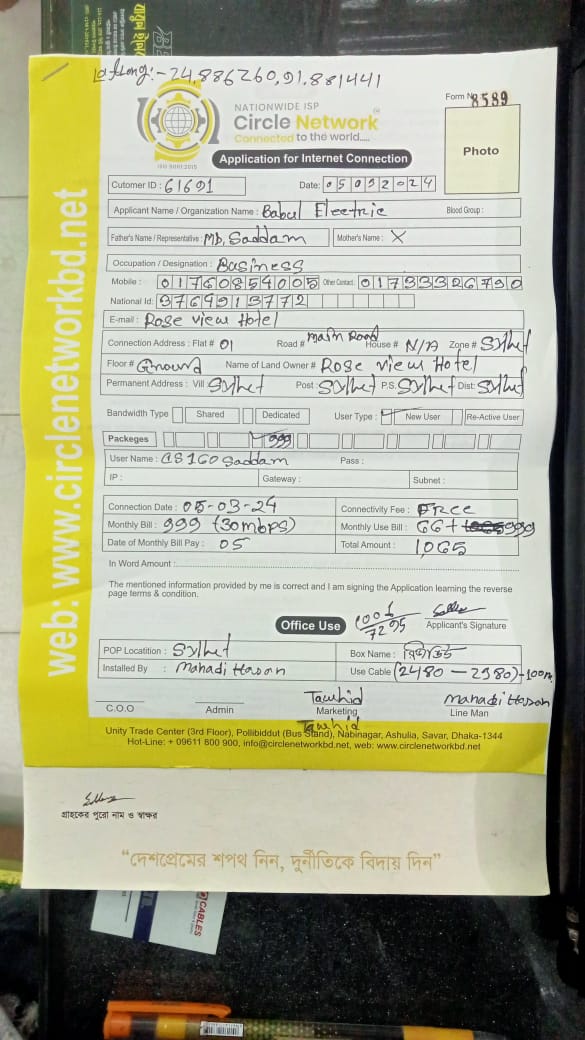 Lat Long:- 24.886260,91.881441
Form No 8589
NATIONWIDE ISP
Circle Network
Connected to the world....
ISO 9001:2015
Photo
Application for Internet Connection
Cutomer ID : 61691
Date: 05032024
Applicant Name / Organization Name : Babul Electric Blood Group :
Father's Name / Representative : MD, Saddam Mother's Name : X
Occupation / Designation : Business
Mobile : 01760854005 Other Contact 01733326790
National Id: 3764913772
E-mail : Rose view Hotel
Connection Address : Flat # 01 Road # main Road House # N/A Zone # Sylhet
Floor # Ground Name of Land Owner # Rose view Hotel
Permanent Address : Vill Sylhet Post : Sylhet P.S. Sylhet Dist: Sylhet
Bandwidth Type Shared Dedicated User Type : New User Re-Active User
Packeges 999
User Name : CS160 Saddam Pass :
IP : Gateway : Subnet :
Connection Date : 05-03-24 Connectivity Fee : Free
Monthly Bill : 999 (30mbps) Monthly Use Bill : 66+ 999
Date of Monthly Bill Pay : 05 Total Amount : 1,065
In Word Amount :
The mentioned information provided by me is correct and I am signing the Application learning the reverse
page terms & condition.
Office Use
Applicant's Signature
POP Locatition : Sylhet Box Name :
Installed By : Mahadi Hasan Use Cable (2480 – 2380)-100m
Tawhid Mahadi Hasan
C.O.O Admin Marketing Line Man
Tawhid
Unity Trade Center (3rd Floor), Pollibiddut (Bus Stand), Nabinagar, Ashulia, Savar, Dhaka-1344
Hot-Line: + 09611 800 900, info@circlenetworkbd.net, web: www.circlenetworkbd.net
web: www.circlenetworkbd.net
গ্রাহকের পুরো নাম ও স্বাক্ষর
“দেশপ্রেমের শপথ নিন, দুর্নীতিকে বিদায় দিন”
CABLES